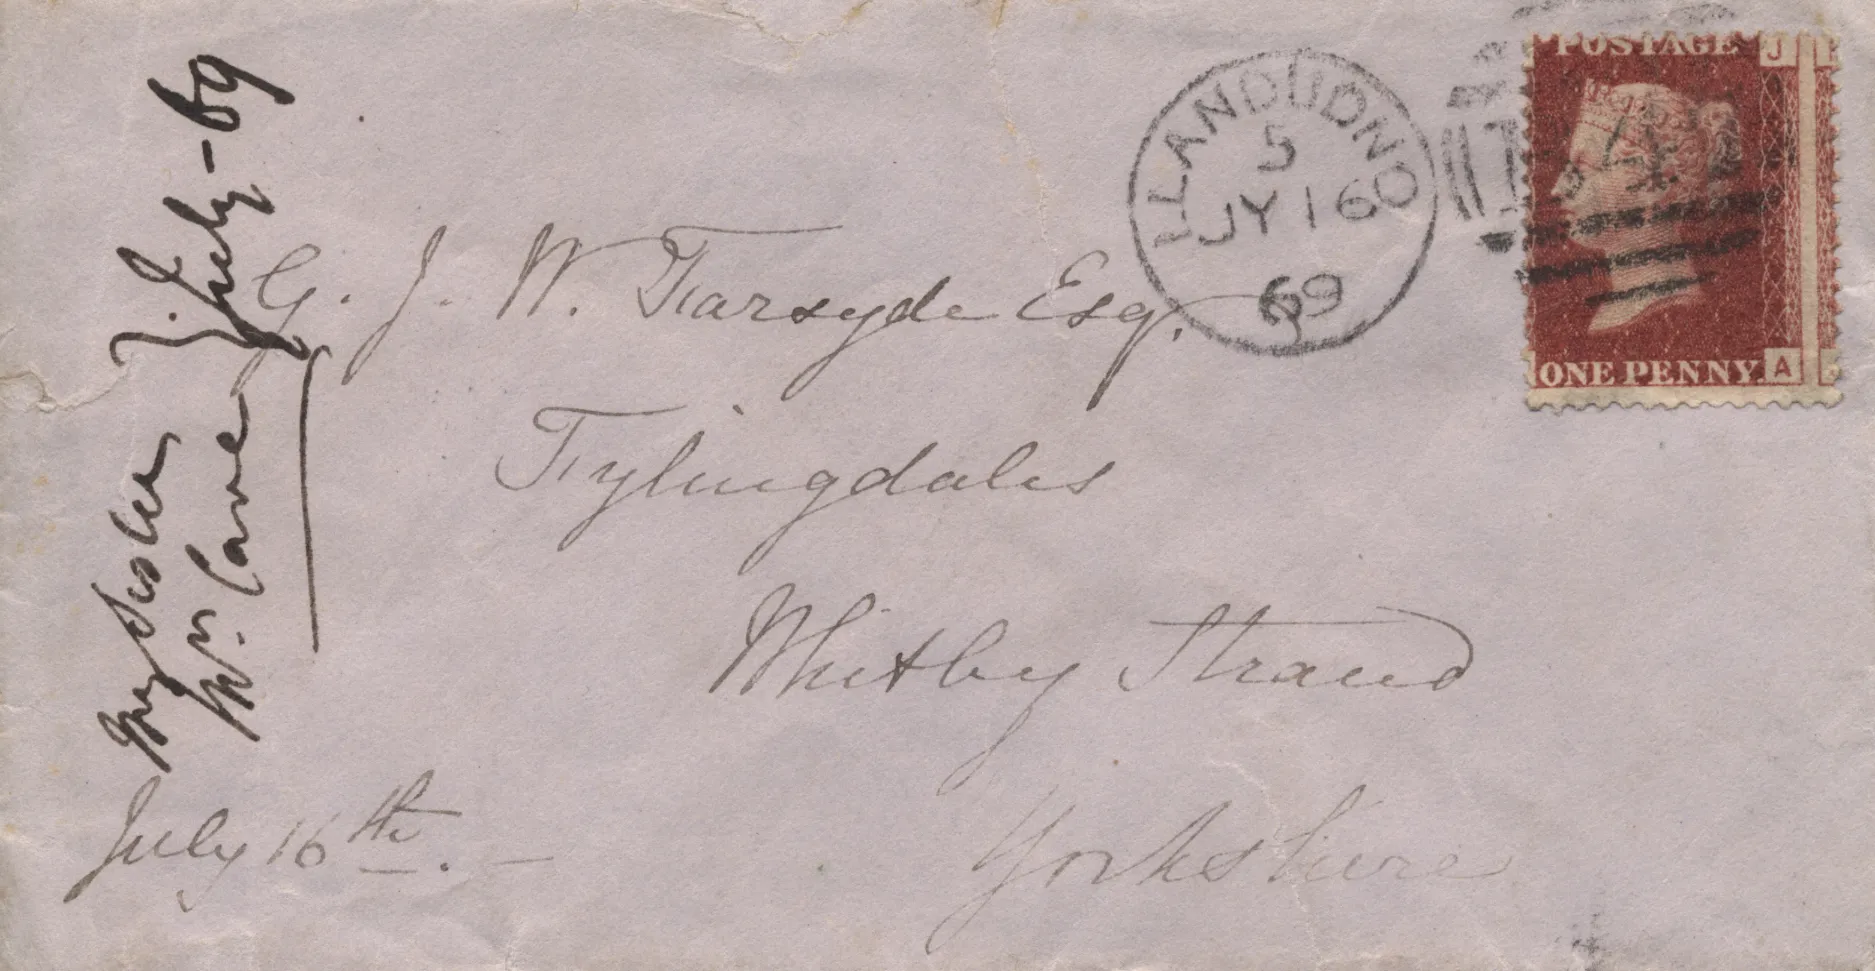 LLANDUDNO
5
JY 16
69
POSTAGE J
ONE PENNY. A
G. J. W. Farsyde Esq.
Fylingdales
Whitby Strand
Yorkshire
July 16th. —
My Sister
July - 69